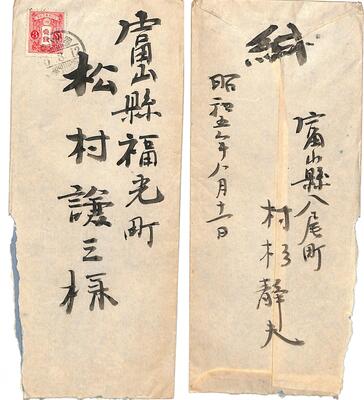 富山縣福光町
松村謙三様
富山縣八尾町
村杉静夫
昭和五年八月十一日